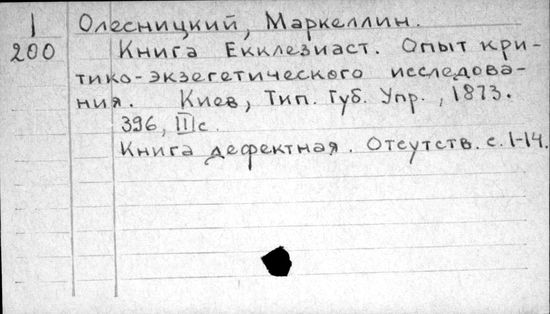 1
200
Олесницкий, Маркеллин.
Книга Екклезиаст. Опыт кри-
тико-экзегетического исследова-
ния. Киев, Тип. Губ. Упр., 1873.
396, III с.
Книга дефектная. Отсутств. с. 1-14.